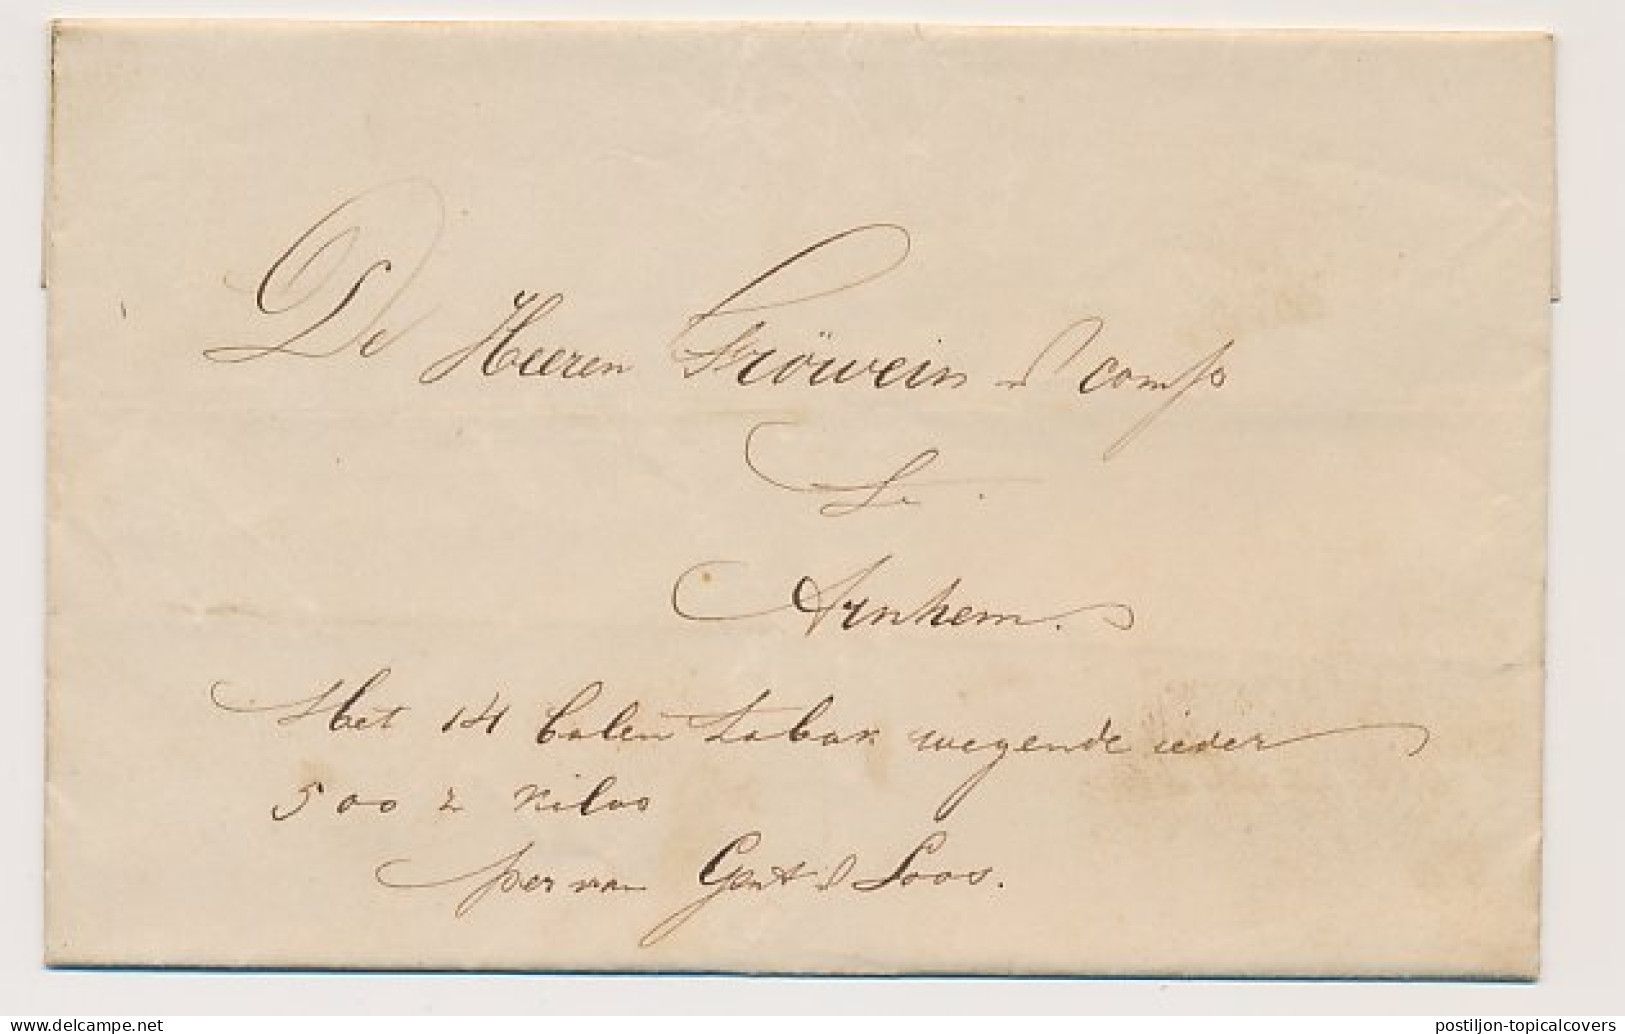 De Heeren Fröwein & comp
Te
Arnhem.
Met 14 balen Tabak wegende ieder
500 Kilos
per van Gent & Loos.
postiljon-topicalcovers
www.delcampe.net